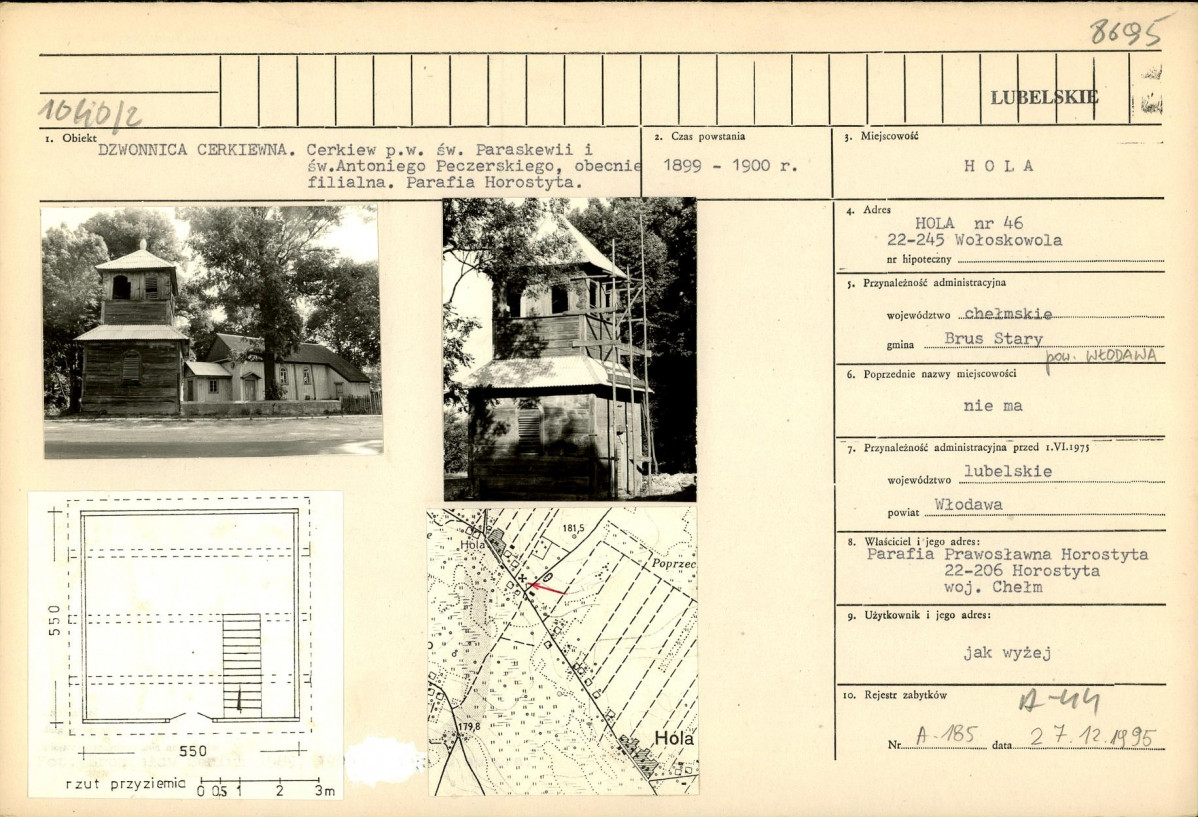 8695
LUBELSKIE
1. Obiekt
DZWONNICA CERKIEWNA. Cerkiew p.w. św. Paraskewii i
św.Antoniego Peczerskiego, obecnie
filialna. Parafia Horostyta.
2. Czas powstania
1899 - 1900 r.
3. Miejscowość
H O L A
4. Adres
HOLA nr 46
22-245 Wołoskowola
nr hipoteczny
5. Przynależność administracyjna
województwo chełmskie
gmina Brus Stary
pow. WŁODAWA
6. Poprzednie nazwy miejscowości
nie ma
7. Przynależność administracyjna przed 1.VI.1975
województwo lubelskie
powiat Włodawa
8. Właściciel i jego adres:
Parafia Prawosławna Horostyta
22-206 Horostyta
woj. Chełm
9. Użytkownik i jego adres:
jak wyżej
10. Rejestr zabytków
A-44
Nr A-185 data 27.12.1995
550
550
rzut przyziemia 0 0.5 1 2 3m
Hola
181,5
Poprzec
179,8
Hola